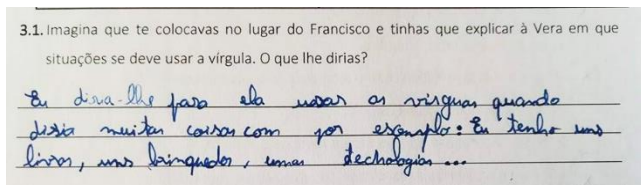 3.1. Imagina que te colocavas no lugar do Francisco e tinhas que explicar à Vera em que
situações se deve usar a vírgula. O que lhe dirias?
Eu diria-lhe para ela usar as virguas quando
disia muitas coisas com por esenplo: Eu tenho uns
livros, uns brinquedos, umas techologias ...